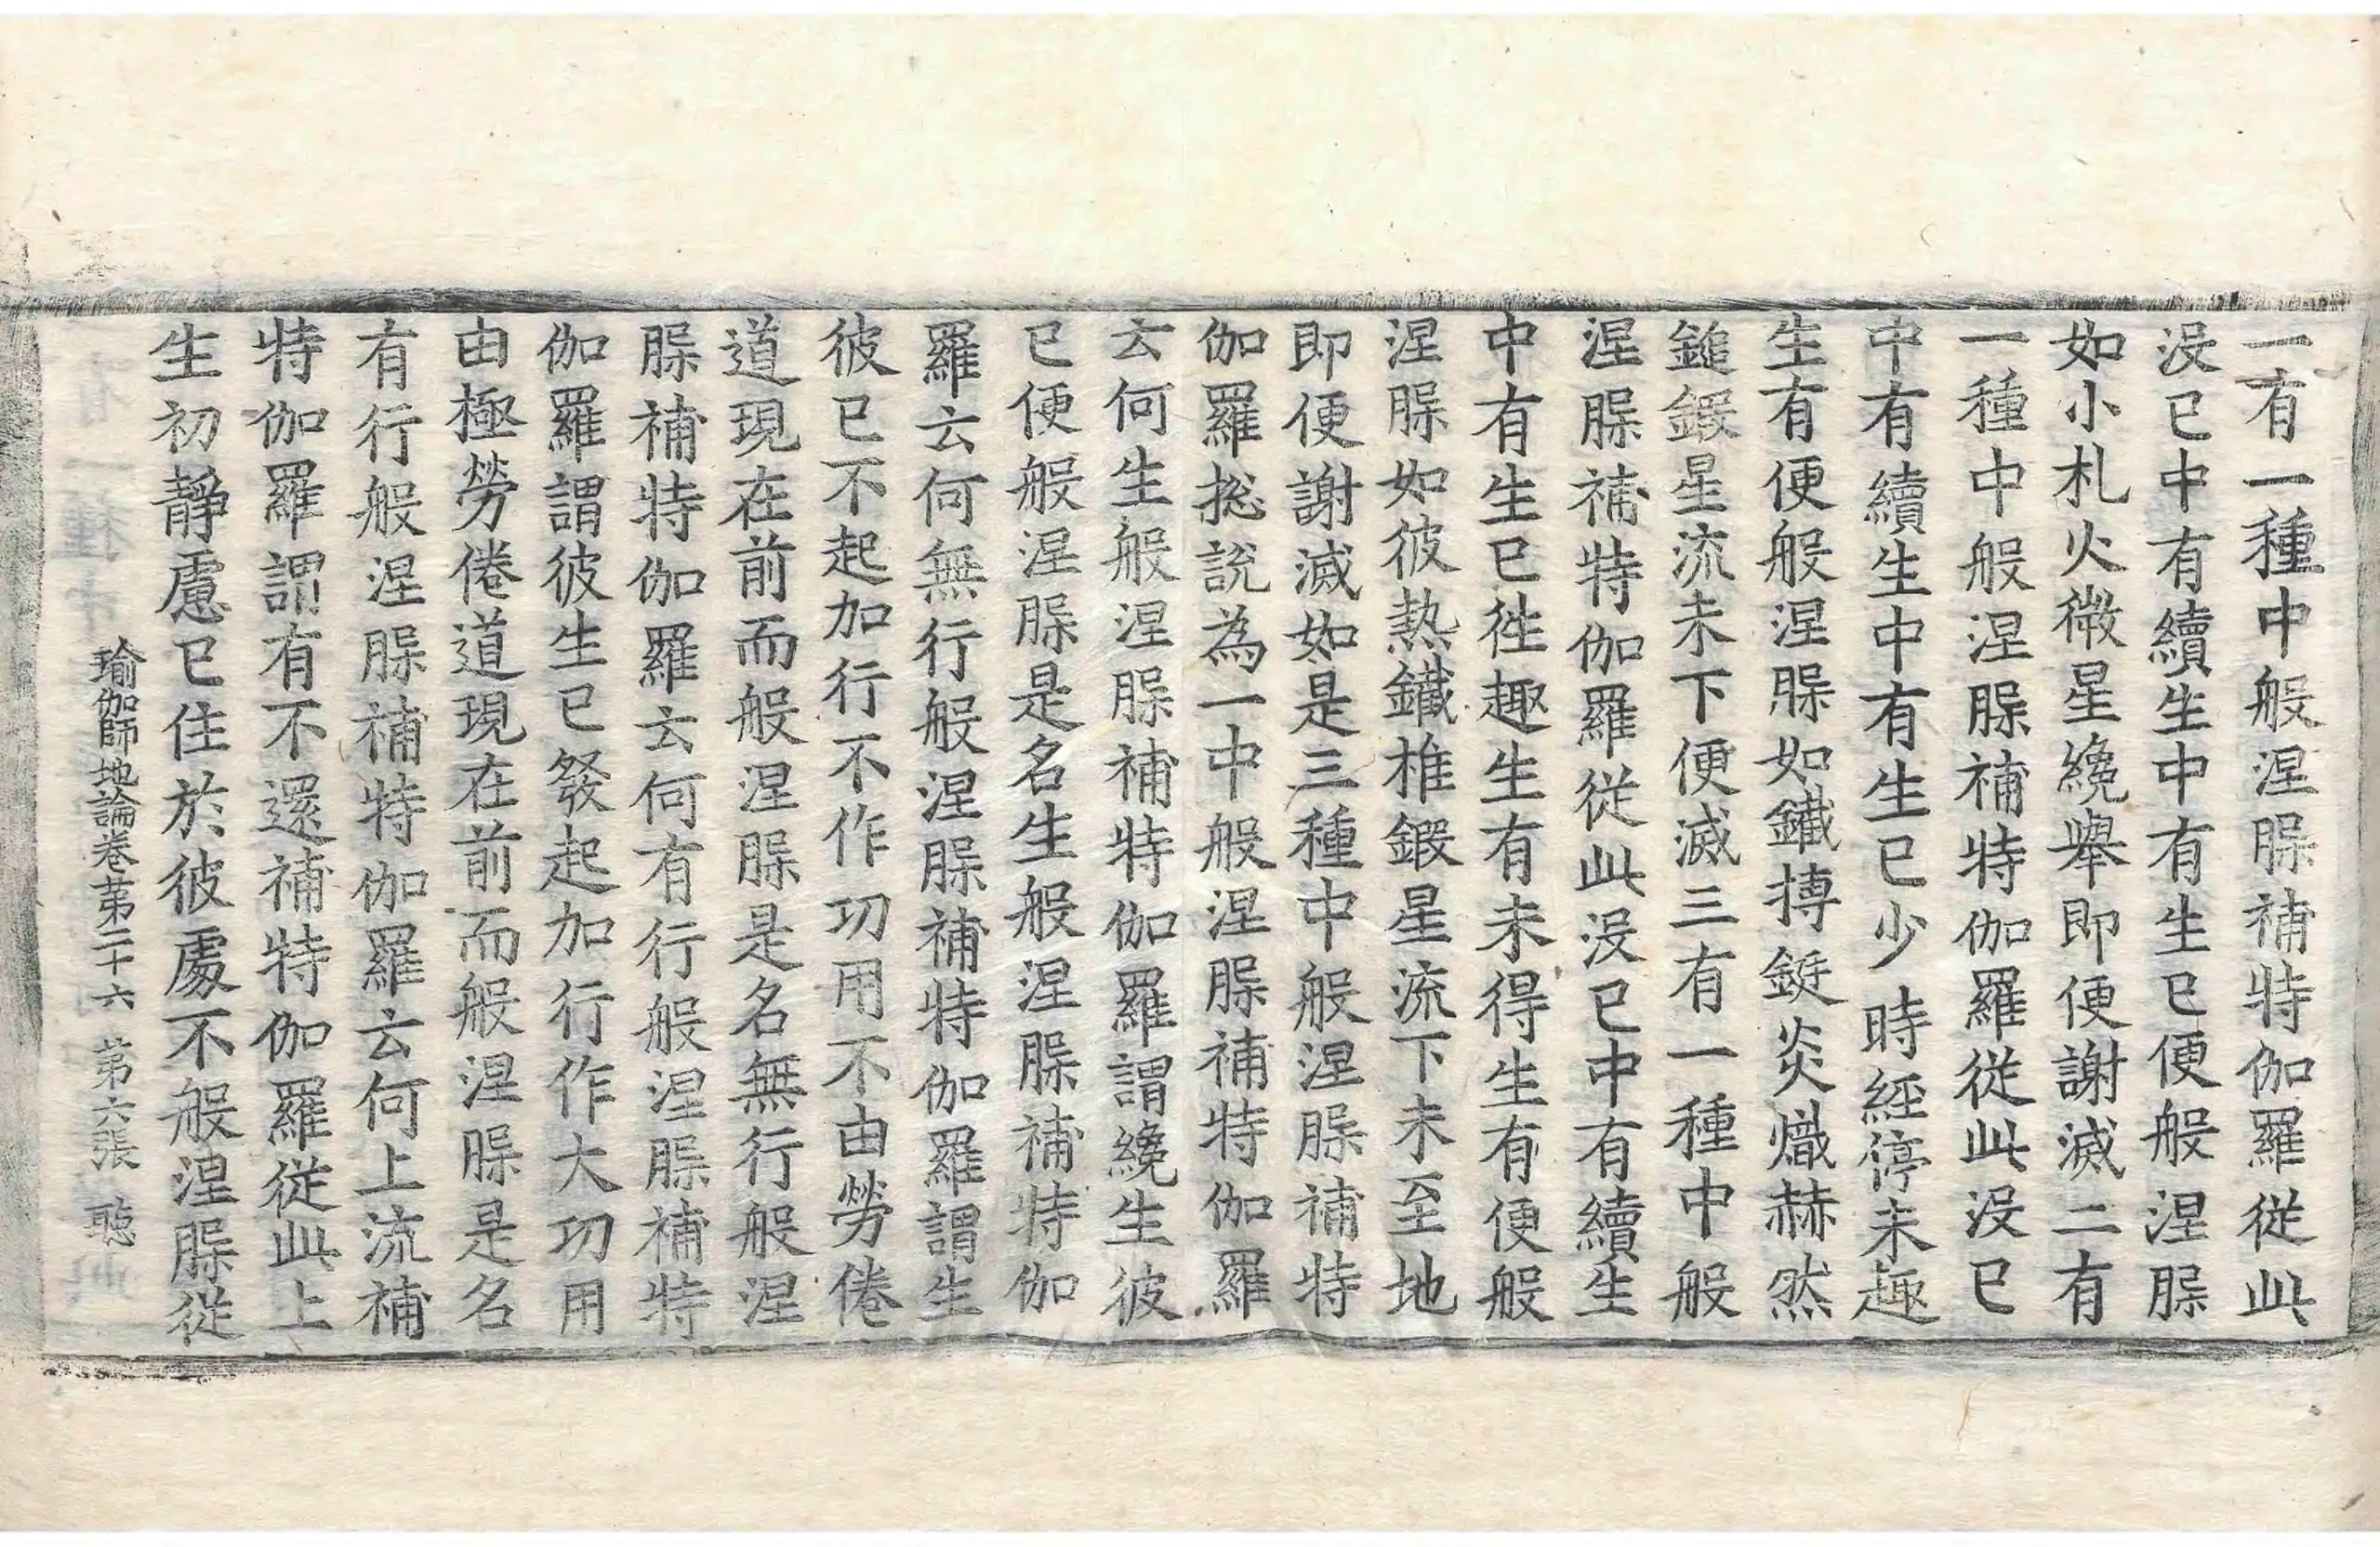 一有一種中般涅腂補特伽羅從此
没已中有續生中有生已便般涅腂
如小札火微星纔舉即便謝滅二有
一種中般涅腂補特伽羅從此没已
中有續生中有生已少時經停未趣
生有便般涅腂如鐵摶鋌炎熾赫然
鎚鍛星流未下便滅三有一種中般
涅腂補特伽羅從此没已中有續生
中有生已徃趣生有未得生有便般
涅腂如彼熱鐵椎鍛星流下未至地
即便謝滅如是三種中般涅腂補特
伽羅捴說為一中般涅腂補特伽羅
云何生般涅腂補特伽羅謂纔生彼
已便般涅腂是名生般涅腂補特伽
羅云何無行般涅腂補特伽羅謂生
彼已不起加行不作功用不由勞倦
道現在前而般涅腂是名無行般涅
腂補特伽羅云何有行般涅腂補特
伽羅謂彼生已發起加行作大功用
由極勞倦道現在前而般涅腂是名
有行般涅腂補特伽羅云何上流補
特伽羅謂有不還補特伽羅從此上
生初靜慮已住於彼處不般涅腂從
瑜伽師地論卷苐二十六 苐六張 聴